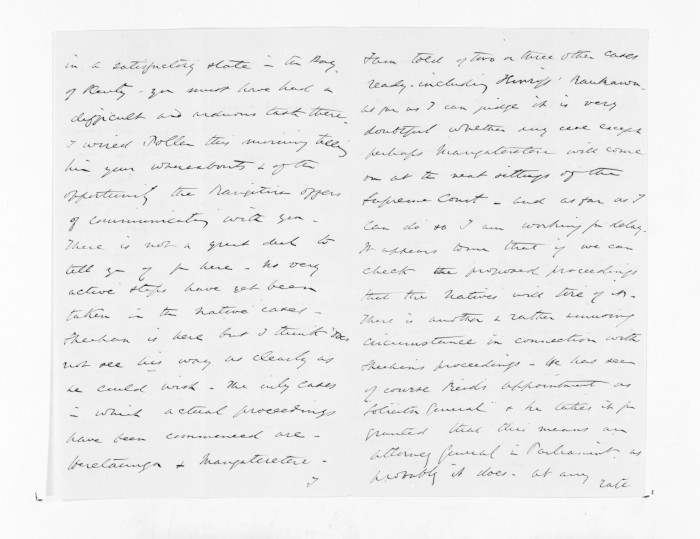 in a satisfactory state in the Bay
of Plenty - you must have had a
difficult and arduous task there.
I wired Pollen this morning telling
him your whereabouts & of the
opportunity the Rangitira offers
of communicating with you -
There is not a great deal to
tell you of from here - No very
active steps have yet been
taken in the Native cases -
Sheehan is here but I think does
not see his way as clearly as
he could wish - The only cases
in which actual proceedings
have been commenced are -
Heretaunga & Mangateretere -
I
I am told of two or three other cases
ready - including Raukawa -
as far as I can judge it is very
doubtful whether any case except
perhaps Mangateretere will come
on at the next sittings of the
Supreme Court - and as far as I
can do so I am working for delay -
It appears to me that if we can
check the proposed proceedings
that the Natives will tire of it -
There is another & rather amusing
circumstance in connection with
Sheehan's proceedings - He has seen
of course Reid's appointment as
"Solicitor General" & he takes it for
granted that this means an
attorney General in Parliament as
probably it does - at any rate